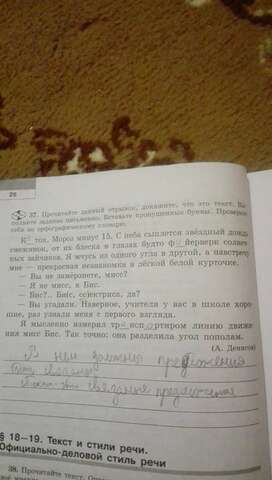 26
37. Прочитайте данный отрывок, докажите, что это текст. Вы-
полните задание письменно. Вставьте пропущенные буквы. Проверьте
себя по орфографическому словарю.
К ток. Мороз минус 15. С неба сыплется звёздный дождь
снежинок, от их блеска в глазах будто ф йерверк солнеч-
ных зайчиков. Я мчусь из одного угла в другой, а навстречу
мне — прекрасная незнакомка в лёгкой белой курточке.
— Вы не замёрзнете, мисс?
— Я не мисс, я Бис.
— Бис?.. Бисс, ссектриса, да?
— Вы угадали. Наверное, учителя у вас в школе хоро-
шие, раз узнали меня с первого взгляда.
Я мысленно измерил тр нсп ортиром линию движе-
ния мисс Бис. Так точно: она разделила угол пополам.
(А. Денисов)
В нём должна предложения
§ 18–19. Текст и стили речи.
Официально-деловой стиль речи
38. Прочитайте текст.